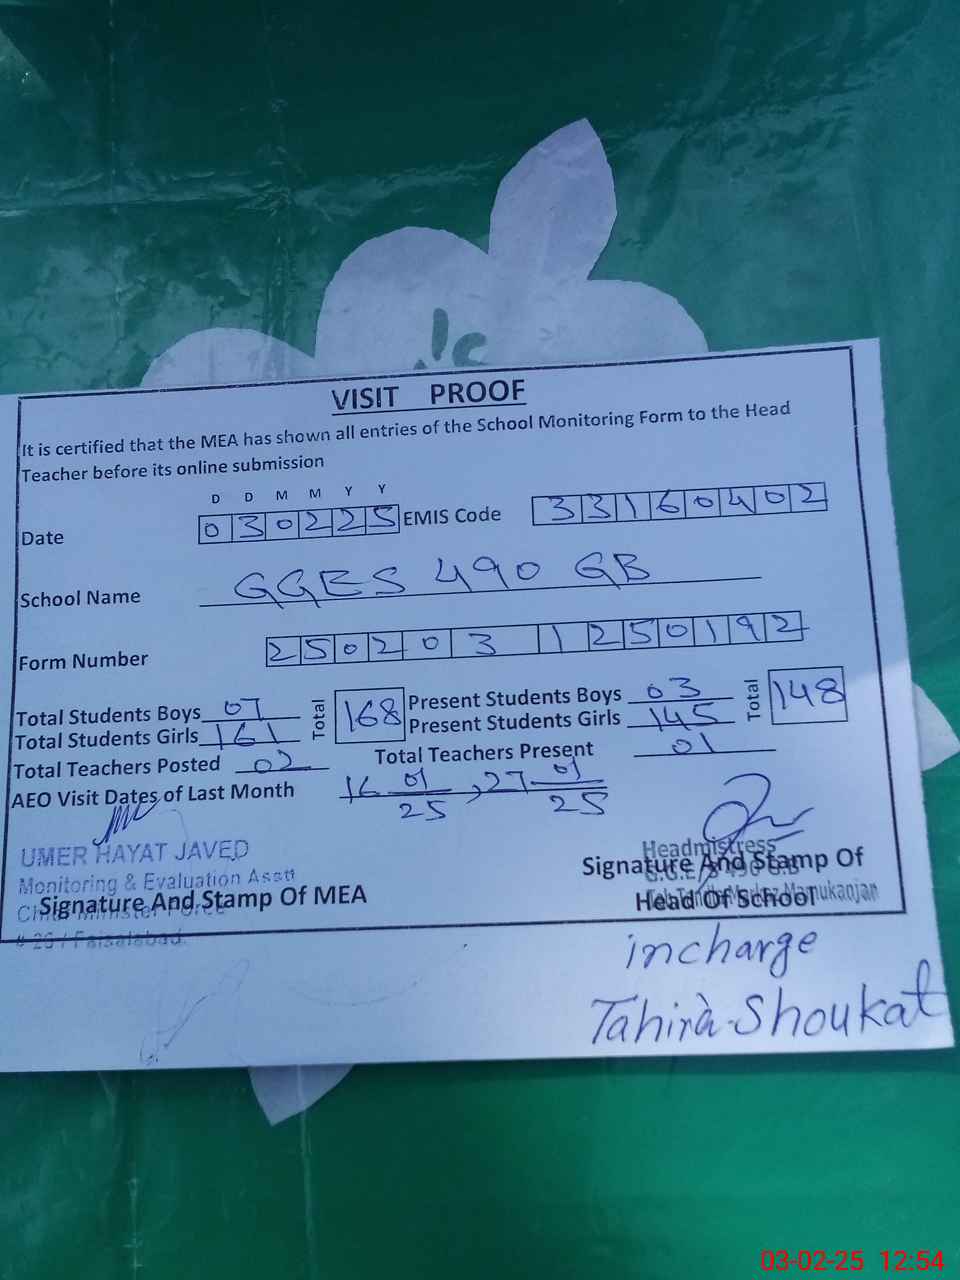 VISIT PROOF
It is certified that the MEA has shown all entries of the School Monitoring Form to the Head
Teacher before its online submission
D D M M Y Y
Date 030225 EMIS Code 33160402
School Name GGES 490 GB
Form Number 2502031250192
Total Students Boys 07 Total 168 Present Students Boys 03 Total 148
Total Students Girls 161 Present Students Girls 145
Total Teachers Posted 02 Total Teachers Present 01
AEO Visit Dates of Last Month 16 01/25, 27 01/25
UMER HAYAT JAVED
Monitoring & Evaluation Asstt
Signature And Stamp Of MEA
Faisalabad.
Headmistress
Signature And Stamp Of
Head Of School
Mamukanjan
incharge
Tahira-Shoukat
03-02-25 12:54